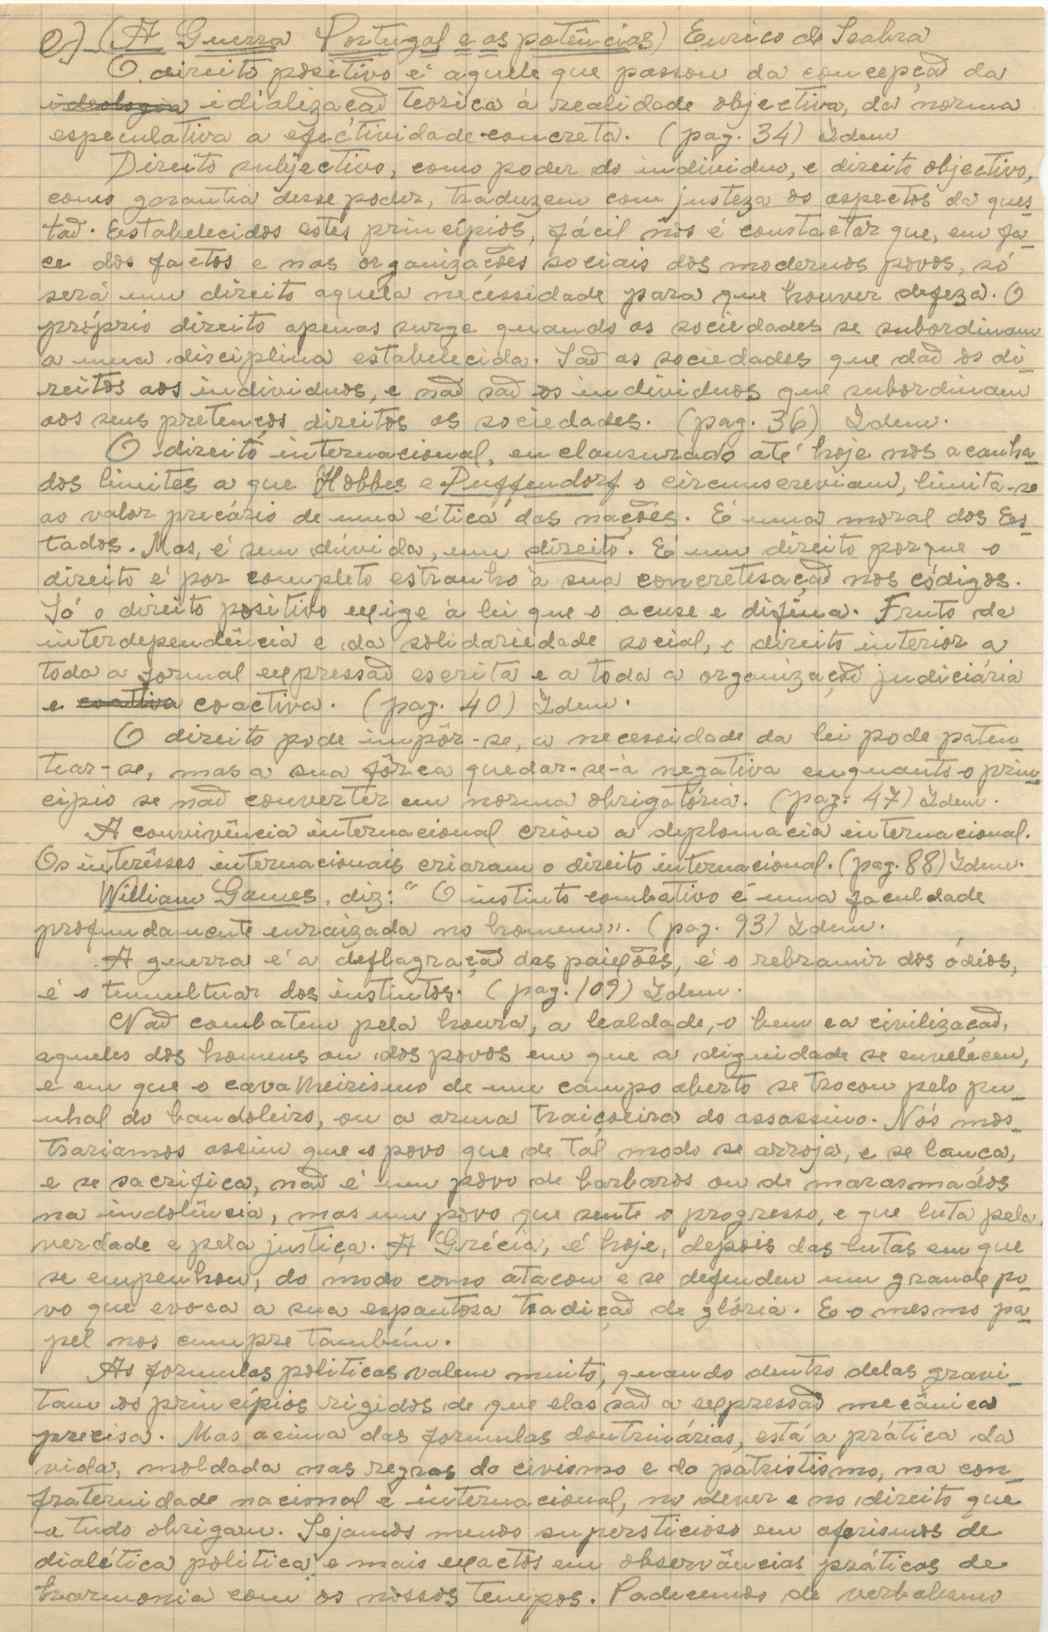 e) (A Guerra Portugal e as potências) Eurico de Seabra
O direito positivo é aquele que passou da concepção da
ideologia idialização teorica á realidade objectiva, da norma
especulativa a efictividade-concreta. (pag. 34) Idem
Direito subjectivo, como poder do individuo, e direito objectivo,
como garantia desse poder, traduzem com justeza os aspectos da ques-
tão. Estabelecidos estes princípios, fácil nos é constactar que, em fa-
ce dos factos e nas organizações sociais dos modernos povos, só
será um direito aquela necessidade para que houver defeza. O
próprio direito apenas surge quando as sociedades se subordinam
a uma disciplina estabelecida. São as sociedades que dão os di-
reitos aos individuos, e não são os individuos que subordinam
aos seus pretenços direitos as sociedades. (pag. 36) Idem.
O direito internacional, enclausurado até hoje nos acanha-
dos limites a que Hobbes e Puffendorf o circunscreviam, limita-se
ao valor precário de uma ética das nações. É uma moral dos Es-
tados. Mas, é sem dúvida, um direito. É um direito porque o
direito é por completo estranho à sua concretisação nos códigos.
Só o direito positivo exige á lei que o acuse e difina. Fruto da
interdependência e da solidariedade social, o direito interior a
toda a formal expressão escrita e a toda a organização judiciária
e coativa coactiva. (pag. 40) Idem.
O direito pode impôr-se, a necessidade da lei pode paten-
tear-se, mas a sua fôrça quedar-se-à negativa enquanto o prin-
cípio se não converter em norma obrigatória. (pag: 47) Idem.
A convivência internacional criou a diplomacia internacional.
Os interêsses internacionais criaram o direito internacional. (pag. 88) Idem.
William Games, diz: "O instinto combativo é uma faculdade
profundamente enraizada no homem". (pag. 93) Idem.
A guerra é a deflagração das paixões, é o rebramir dos ódios,
é o tumultuar dos instintos. (pag. 109) Idem.
Não combatem pela honra, a lealdade, o bem e a civilização,
aqueles dos homens ou dos povos em que a dignidade se envelécem,
e em que o cavalheirismo de um campo aberto se trocou pelo pu-
nhal do bandoleiro, ou a arma traiçoeira do assassino. Nós mos-
trariamos assim que o povo que de tál modo se arroja, e se lança,
e se sacrifica, não é um povo de barbaros ou de marasmádos
na indolência, mas um povo que sente o progresso, e que luta pela
verdade e pela justiça. A Grécia, é hoje, depois das lutas em que
se empenhou, do modo como atacou e se defendeu um grande po-
vo que evoca a sua espantosa tradição de glória. E o mesmo pa-
pel nos cumpre também.
As formulas politicas valem muito, quando dentro delas gravi-
tam os princípios rigidos de que elas são a expressão mecânica
precisa. Mas acima das formulas doutrinárias, está a prática da
vida, moldada nas regras do civismo e do patriotismo, na con-
fraternidade nacional e internacional, no dever e no direito que
a tudo obrigam. Sejamos menos supersticioso em aforismos de
dialética politica e mais exactos em observâncias práticas de
harmonia com os nossos tempos. Padecemos de verbalismo